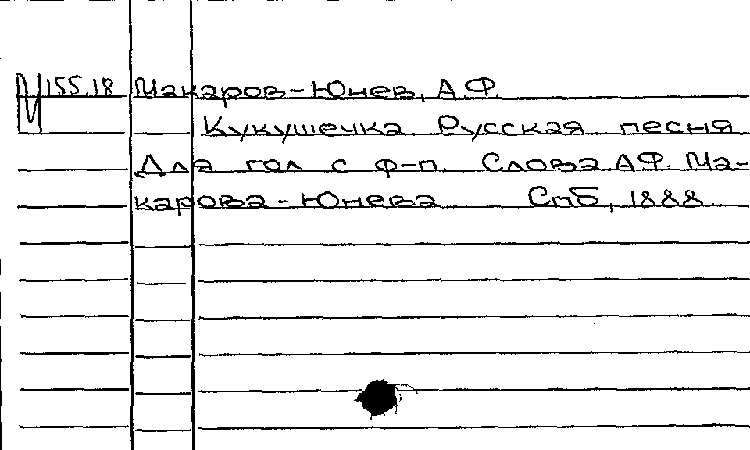 М155.18 Макаров-Юнев, А.Ф.
Кукушечка. Русская песня
Для гол с ф-п. Слова А.Ф. Ма-
карова-Юнева Спб, 1888